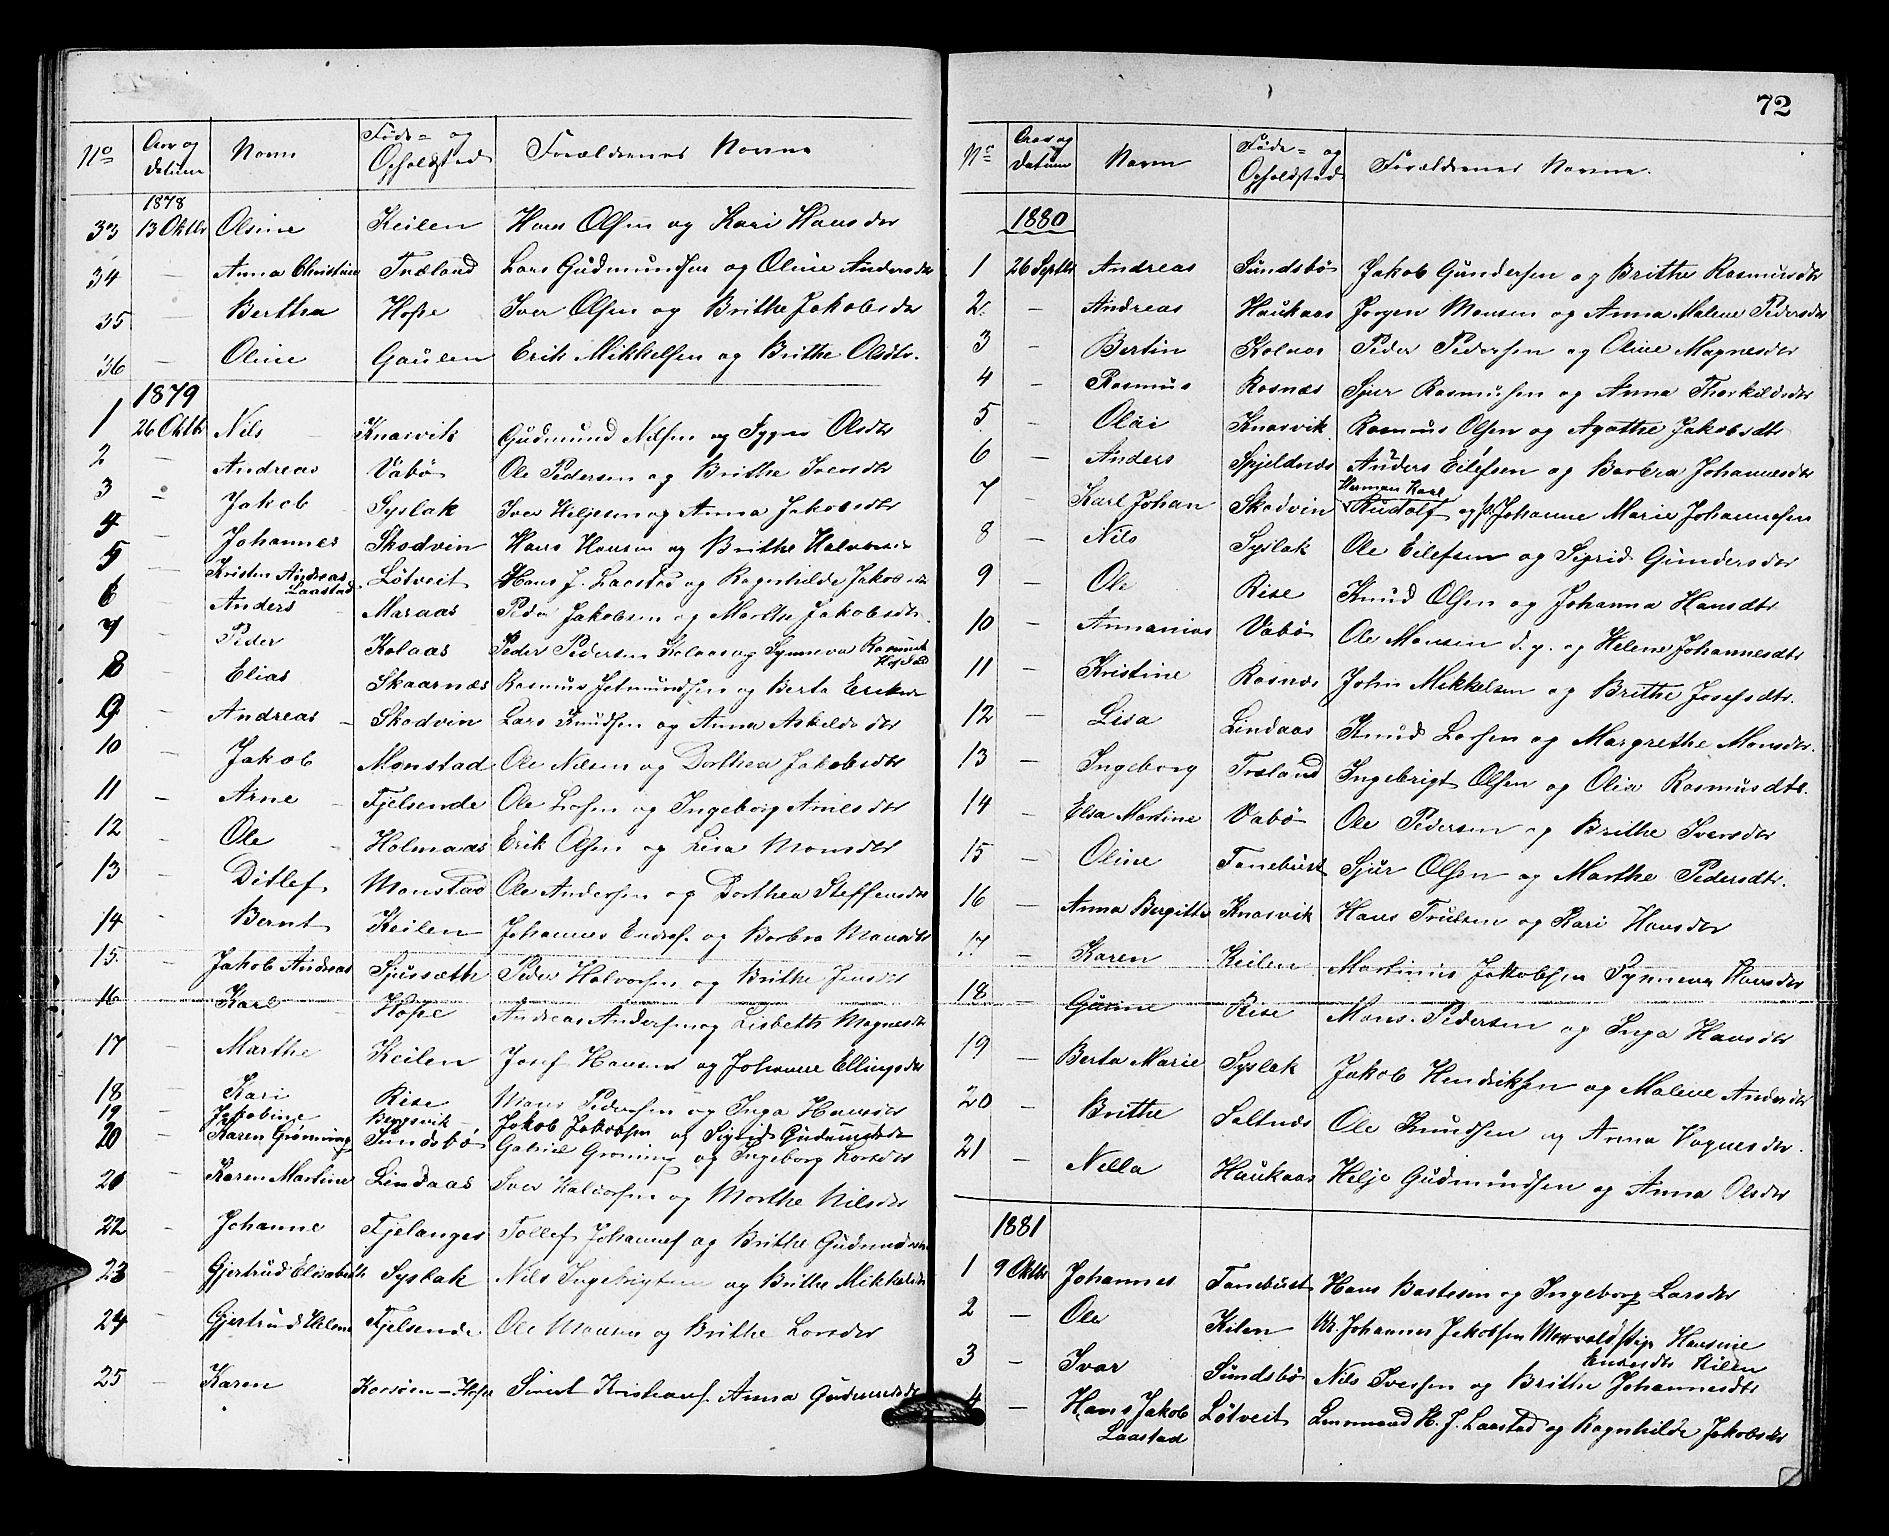 No Aar og Datum Navn Føde- og Opholdsted Forældrenes Navne
1878
33 13 Oktbr Olsine Keilen Hans Olsen og Kari Hansdtr
34 — Anna Christine Træland Lars Gudmundsen og Oline Andersdtr
35 — Bertha Hope Iver Olsen og Brithe Jakobsdtr
36 — Oline Gaulen Erik Mikkelsen og Brithe Olsdtr.
1879
1 26 Oktbr Nils Knarvik Gudmund Nilsen og Olsdtr
2 — Andreas Vabø Ole Pedersen og Brithe Iversdtr
3 — Jakob Syslak Iver Heljesen og Anna Jakobsdtr
4 — Johannes Skodvin Hans Hansen og Brithe
5 — Kristen Andreas Laastad Løtveit Hans J. Laastad og Ragnhilde Jakobsdtr
6 — Anders Maraas Peder Jakobsen og Marthe Jakobsdtr.
7 — Peder Kolaas Peder Pedersen Kolaas og Synneva Rasmusdt
8 — Elias Skaarnæs Rasmus og Berta Eriksdtr
9 — Andreas — Skodvin Lars Knudsen og Anna Askildsdtr
10 — Jakob Monstad Ole Nilsen og Dorthea Jakobsdtr
11 — Arne — Fjelsende Ole Larsen og Ingeborg Arnesdtr
12 — Ole — Holmaas Erik Olsen og Lisa Monsdtr
13 — Ditlef Monstad Ole Andersen og Dorthea Steffensdtr
14 — Bernt Keilen Johannes Endresf. og Barbra Monsdtr
15. — Jakob Andreas Sjursæth Peder Halvorsen og Brithe Jensdtr
16 — Karl — Hope Andreas Andersen og Lisbeth Magnesdtr
17 — Marthe Keilen Josef Hansen og Johanne Ellingsdtr
18 — Kari Rise Mons Pedersen og Inga Hansdtr
19 — Jakobine Bergsvik Jakob Jakobsen og Sigrid Gudmundsdtr
20 Karen Grønning Sundsbø Gabriel Grøning og Ingeborg Larsdtr
21 — Karen Martine Lindaas Iver Halvorsen og Marthe Nilsdtr
22 — Johanne Fjelanger Tollef Johannesf og Brithe Gudmundsdtr
23 — Gjertrud Elisabeth Syslak Nils Ingebrigtsen og Brithe Mikkelsdtr
24 — Gjertrud Helene Fjelsende Ole Monsen og Brithe Larsdtr
25 — Karen — Hope Sivert Kristiansf. Anna Gudmundsdtr
72
No Aar og Datum Navn Føde- og Opholdsted Forældrenes Navne.
1880
1 26 Septbr Andreas Sundsbø Jakob Gundersen og Brithe Rasmusdtr
2. — Andreas Haukaas Jørgen Monsen og Anna Malene Pedersdtr
3 — Bertin Kolaas Peder Pedersen og Oline Magnesdtr
4 — Rasmus Rosnæs Sjur Rasmusen og Anna Thorkildsdtr
5 — Olai Knarvik Rasmus Olsen og Agathe Jakobsdtr
6 — Anders Spjeldnæs Anders Eilefsen og Barbra Johannesdtr
Herman Karl
7 — Karl Johan Skodvin Rudolf og Johanne Marie Johannesen
8 — Nils Syslak Ole Eilefsen og Sigrid Gundersdtr
9 — Ole Rise Knud Olsen og Johanna Hansdtr
10 — Annanias Vabø Ole Monsen d. y. og Helene Johannesdtr
11 — Kristine Rosnæs John Mikkelsen og Brithe Josefsdtr.
12 — Lisa Lindaas Knud Larsen og Margrethe Monsdtr.
13 — Ingeborg Træland Ingebrigt Olsen og Olia Rasmusdtr.
14 — Elsa Martine Vabø Ole Pedersen og Brithe Iversdtr
15 — Oline Fanebust Sjur Olsen og Marthe Pedersdtr.
16 — Anna Birgitte Knarvik Hans Trulsen og Kari Hansdtr
17. — Karen Keilen Martinus Jakobsen Synneva Hansdtr
18 — Gurine Rise Mons Pedersen og Inga Hansdtr
19 — Berta Marie Syslak Jakob Hendriksen og Malene Andersdtr
20 — Brithe Saltnæs Ole Knudsen og Anna Vognesdtr.
21 — Nilla Haukaas Helje Gudmundsen og Anna Olsdtr
1881
1 9 Oktbr Johannes Fanebust Hans Bastesen og Ingeborg Larsdtr
2 — Ole Kilen Johannes Jakobsen Hansine
Kilen
3 — Ivar Sundsbø Nils Iversen og Brithe Johannesdtr
4 — Hans Jakob Laastad Løtveit Lensmand H. J. Laastad og Ragnhilde Jakobsdtr